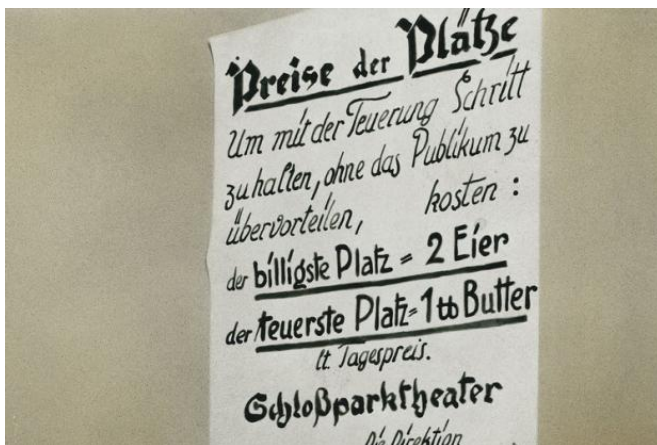 Preise der Plätze
Um mit der Teuerung Schritt
zu halten, ohne das Publikum zu
übervorteilen, kosten :
der billigste Platz = 2 Eier
der teuerste Platz = 1 ℔ Butter
lt. Tagespreis.
Schloßparktheater
Die Direktion